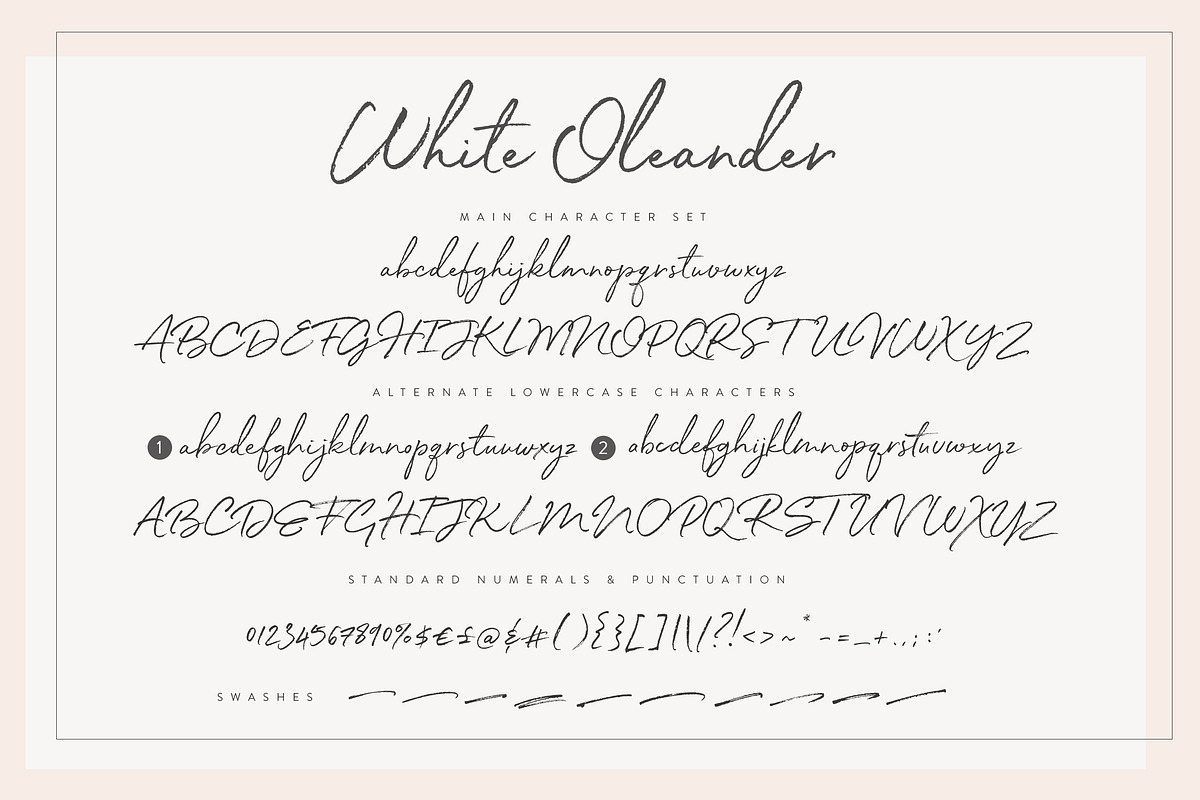 White Oleander
MAIN CHARACTER SET
abcdefghijklmnopqrstuvwxyz
ABCDEFGHIJKLMNOPQRSTUVWXYZ
ALTERNATE LOWERCASE CHARACTERS
1 abcdefghijklmnopqrstuvwxyz 2 abcdefghijklmnopqrstuvwxyz
ABCDEFGHIJKLMNOPQRSTUVWXYZ
STANDARD NUMERALS & PUNCTUATION
01234567890%$€£@&#(){}[]|\/?!<>~*-=_+.,;:'
SWASHES